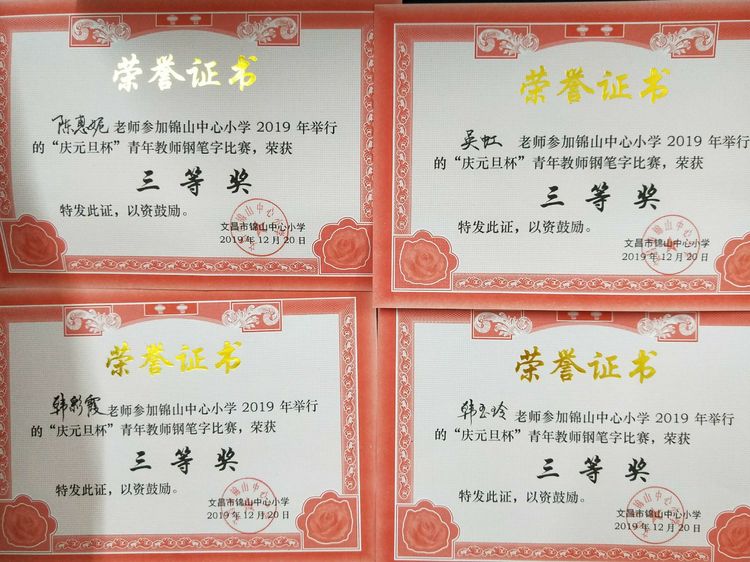 荣誉证书
陈惠妮 老师参加锦山中心小学 2019 年举行
的“庆元旦杯”青年教师钢笔字比赛，荣获
三等奖
特发此证，以资鼓励。
文昌市锦山中心小学
2019年12月20日
荣誉证书
吴虹 老师参加锦山中心小学 2019 年举行
的“庆元旦杯”青年教师钢笔字比赛，荣获
三等奖
特发此证，以资鼓励。
文昌市锦山中心小学
2019年12月20日
荣誉证书
韩彩霞 老师参加锦山中心小学 2019 年举行
的“庆元旦杯”青年教师钢笔字比赛，荣获
三等奖
特发此证，以资鼓励。
文昌市锦山中心小学
2019年12月20日
荣誉证书
韩玉玲 老师参加锦山中心小学 2019 年举行
的“庆元旦杯”青年教师钢笔字比赛，荣获
三等奖
特发此证，以资鼓励。
文昌市锦山中心小学
2019年12月20日